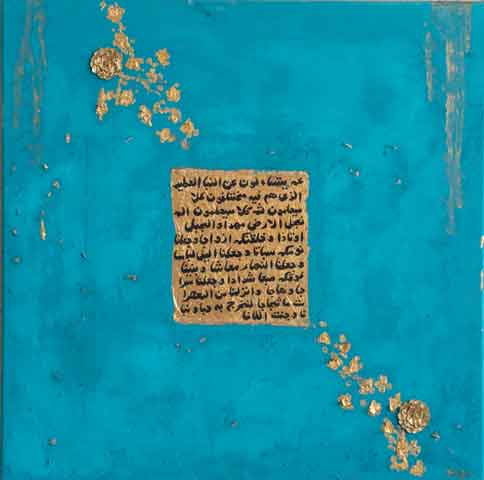 عم يتساءلون عن النبا العظيم
الذي هم فيه مختلفون كلا
سيعلمون ثم كلا سيعلمون الم
نجعل الارض مهدا والجبال
اوتادا و خلقنكم ازواجا وجعلنا
نومكم سباتا وجعلنا اليل لباسا
وجعلنا النهار معاشا وبنينا
فوقكم سبعا شدادا وجعلنا سرا
جا وهاجا وانزلنا من المعصرا
ت ماء ثجاجا لنخرج به حبا و نبا
تا وجنت الفافا